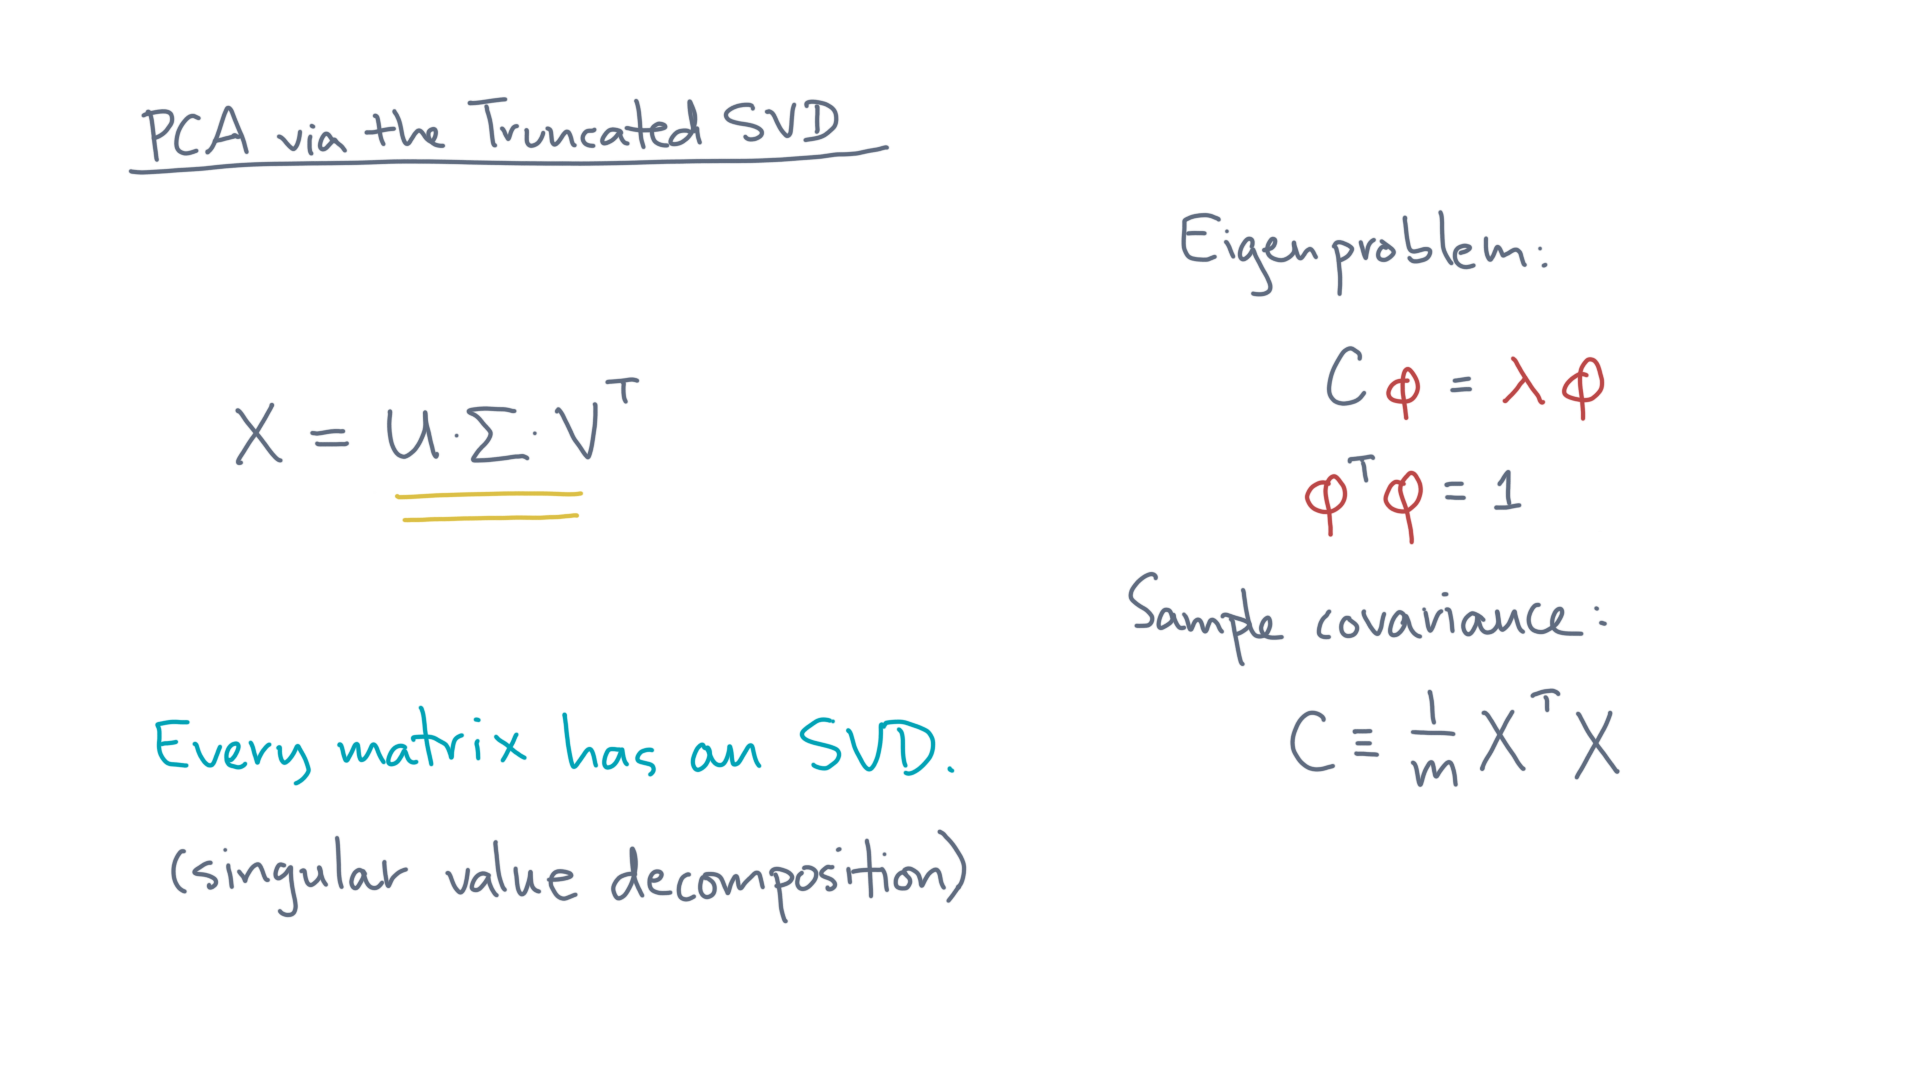 PCA via the Truncated SVD
X = U · Σ · Vᵀ
Every matrix has an SVD.
(singular value decomposition)
Eigenproblem:
C φ = λ φ
φᵀφ = 1
Sample covariance:
C ≡ 1/m Xᵀ X